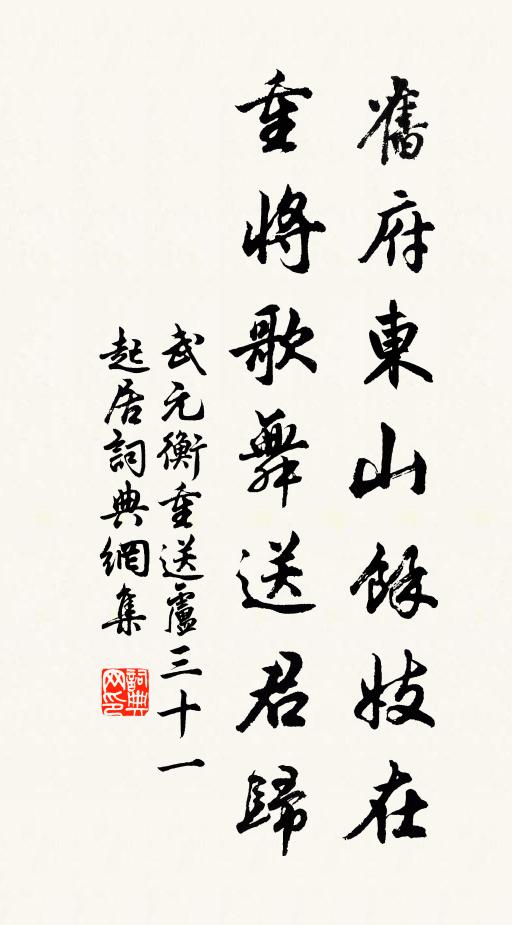 舊府東山餘妓在
重將歌舞送君歸
武元衡重送盧三十一
起居詞典網集
詞典
网印